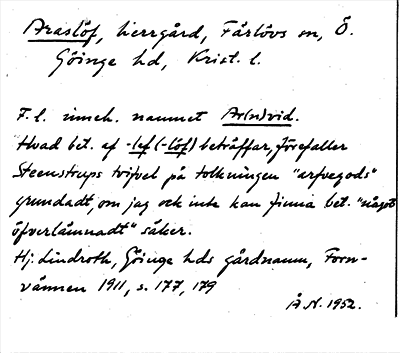 Araslöf, herrgård, Färlövs sn, Ö.
Göinge hd, Krist. l.
F.l. inneh. namnet Ar(n)vid.
Hvad bet. af -lef (-löf) beträffar, förefaller
Steenstrups tvifvel på tolkningen "arfvegods"
grundadt, om jag ock inte kan finna bet. "något
öfverlämnadt" säker.
Hj. Lindroth, Göinge hds gårdnamn, Forn-
vännen 1911, s. 177, 179
Å N. 1952.